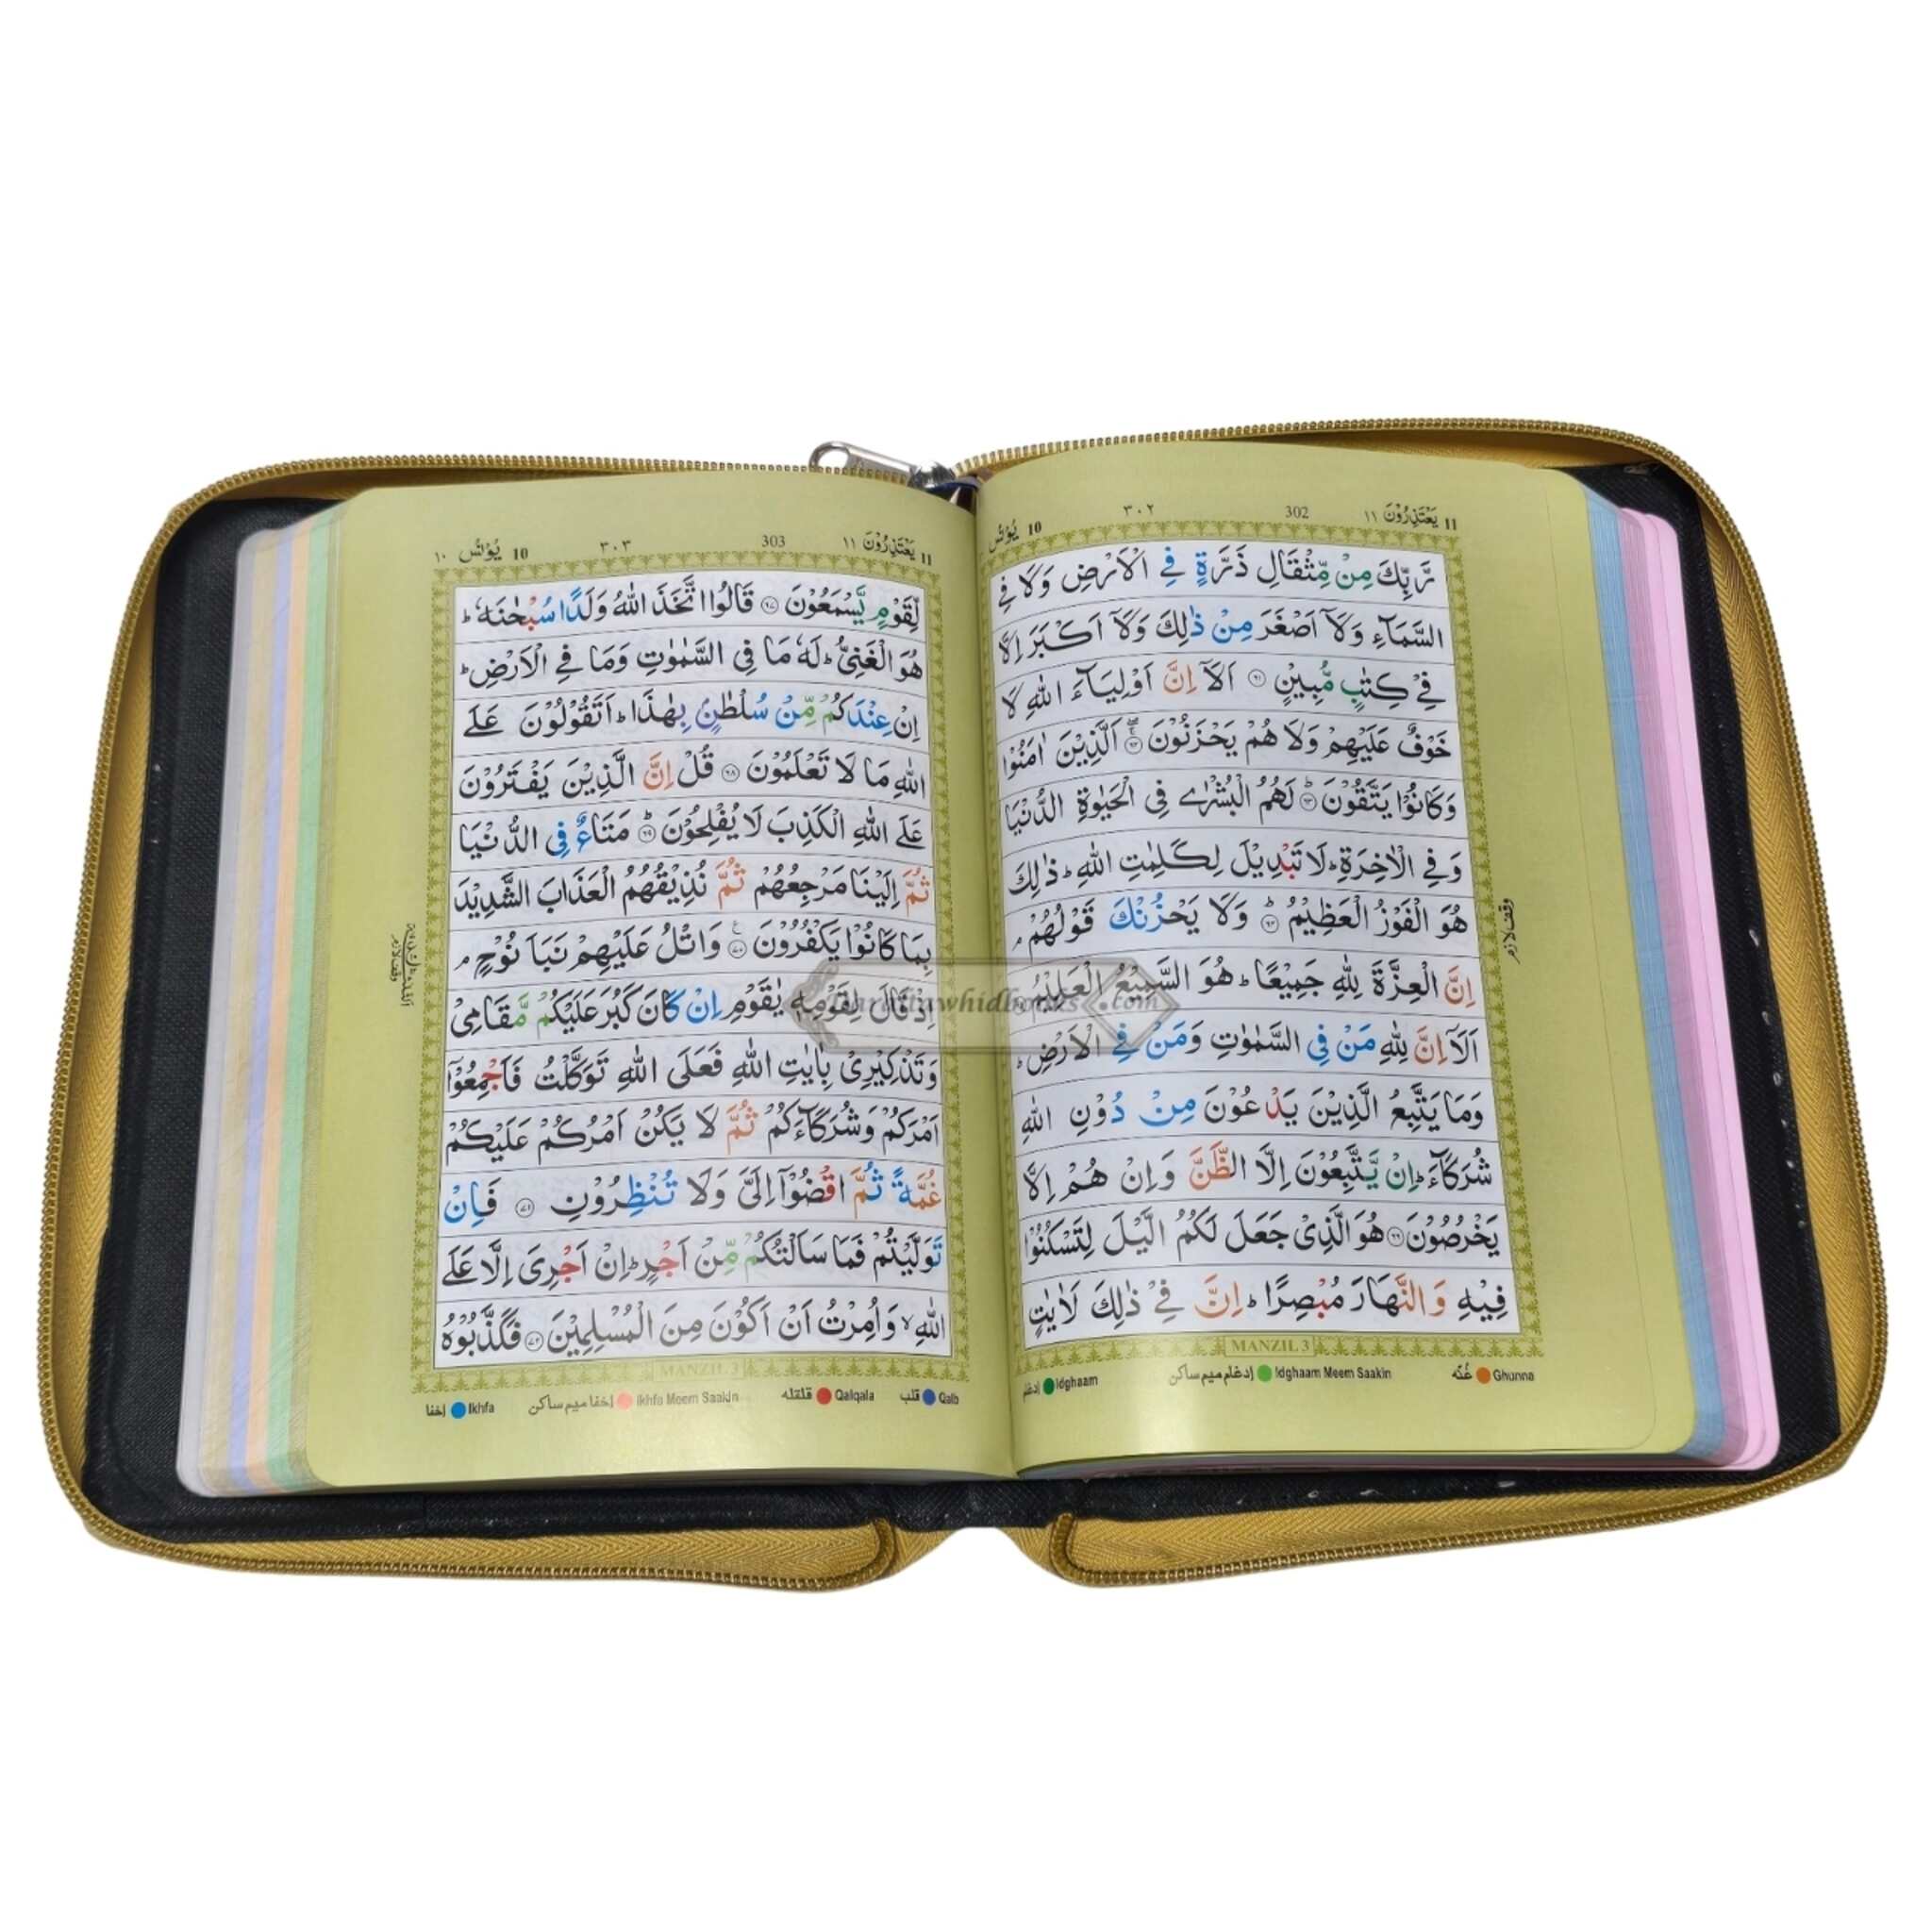 11 يَعْتَذِرُوْنَ ١١ 302 ٣٠٢ 10 يُوْنُس
رَّبِّكَ مِنْ مِّثْقَالِ ذَرَّةٍ فِي الْاَرْضِ وَلَا فِي
السَّمَآءِ وَلَآ اَصْغَرَ مِنْ ذٰلِكَ وَلَآ اَكْبَرَ اِلَّا
فِيْ كِتٰبٍ مُّبِيْنٍ ۝٦١ اَلَآ اِنَّ اَوْلِيَآءَ اللّٰهِ لَا
خَوْفٌ عَلَيْهِمْ وَلَا هُمْ يَحْزَنُوْنَ ۝٦٢ اَلَّذِيْنَ اٰمَنُوْا
وَكَانُوْا يَتَّقُوْنَ ۝٦٣ؕ لَهُمُ الْبُشْرٰى فِي الْحَيٰوةِ الدُّنْيَا
وَفِي الْاٰخِرَةِ ؕ لَا تَبْدِيْلَ لِكَلِمٰتِ اللّٰهِ ؕ ذٰلِكَ
هُوَ الْفَوْزُ الْعَظِيْمُ ۝٦٤ؕ وَلَا يَحْزُنْكَ قَوْلُهُمْ ۘ
اِنَّ الْعِزَّةَ لِلّٰهِ جَمِيْعًا ؕ هُوَ السَّمِيْعُ الْعَلِيْمُ
اَلَآ اِنَّ لِلّٰهِ مَنْ فِي السَّمٰوٰتِ وَمَنْ فِي الْاَرْضِ ؕ
وَمَا يَتَّبِعُ الَّذِيْنَ يَدْعُوْنَ مِنْ دُوْنِ اللّٰهِ
شُرَكَآءَ ؕ اِنْ يَّتَّبِعُوْنَ اِلَّا الظَّنَّ وَاِنْ هُمْ اِلَّا
يَخْرُصُوْنَ ۝٦٦ هُوَ الَّذِيْ جَعَلَ لَكُمُ الَّيْلَ لِتَسْكُنُوْا
فِيْهِ وَالنَّهَارَ مُبْصِرًا ؕ اِنَّ فِيْ ذٰلِكَ لَاٰيٰتٍ
وقف لازم
MANZIL 3
Ghunna غُنّه Idghaam Meem Saakin إدغام ميم ساكن Idghaam إدغام
11 يَعْتَذِرُوْنَ ١١ 303 ٣٠٣ 10 يُوْنُس ١٠
لِّقَوْمٍ يَّسْمَعُوْنَ ۝٦٧ قَالُوا اتَّخَذَ اللّٰهُ وَلَدًا سُبْحٰنَهٗ ؕ
هُوَ الْغَنِيُّ ؕ لَهٗ مَا فِي السَّمٰوٰتِ وَمَا فِي الْاَرْضِ ؕ
اِنْ عِنْدَكُمْ مِّنْ سُلْطٰنٍ بِهٰذَا ؕ اَتَقُوْلُوْنَ عَلَى
اللّٰهِ مَا لَا تَعْلَمُوْنَ ۝٦٨ قُلْ اِنَّ الَّذِيْنَ يَفْتَرُوْنَ
عَلَى اللّٰهِ الْكَذِبَ لَا يُفْلِحُوْنَ ۝٦٩ؕ مَتَاعٌ فِي الدُّنْيَا
ثُمَّ اِلَيْنَا مَرْجِعُهُمْ ثُمَّ نُذِيْقُهُمُ الْعَذَابَ الشَّدِيْدَ
بِمَا كَانُوْا يَكْفُرُوْنَ ۝٧٠ وَاتْلُ عَلَيْهِمْ نَبَاَ نُوْحٍ ۘ
اِذْ قَالَ لِقَوْمِهٖ يٰقَوْمِ اِنْ كَانَ كَبُرَ عَلَيْكُمْ مَّقَامِيْ
وَتَذْكِيْرِيْ بِاٰيٰتِ اللّٰهِ فَعَلَى اللّٰهِ تَوَكَّلْتُ فَاَجْمِعُوْٓا
اَمْرَكُمْ وَشُرَكَآءَكُمْ ثُمَّ لَا يَكُنْ اَمْرُكُمْ عَلَيْكُمْ
غُمَّةً ثُمَّ اقْضُوْٓا اِلَيَّ وَلَا تُنْظِرُوْنِ ۝٧١ فَاِنْ
تَوَلَّيْتُمْ فَمَا سَاَلْتُكُمْ مِّنْ اَجْرٍ ؕ اِنْ اَجْرِيَ اِلَّا عَلَى
اللّٰهِ ۙ وَاُمِرْتُ اَنْ اَكُوْنَ مِنَ الْمُسْلِمِيْنَ ۝٧٢ فَكَذَّبُوْهُ
وقف لازم
MANZIL 3
Qalb قلب Qalqala قلقله Ikhfa Meem Saakin إخفا ميم ساكن Ikhfa إخفا